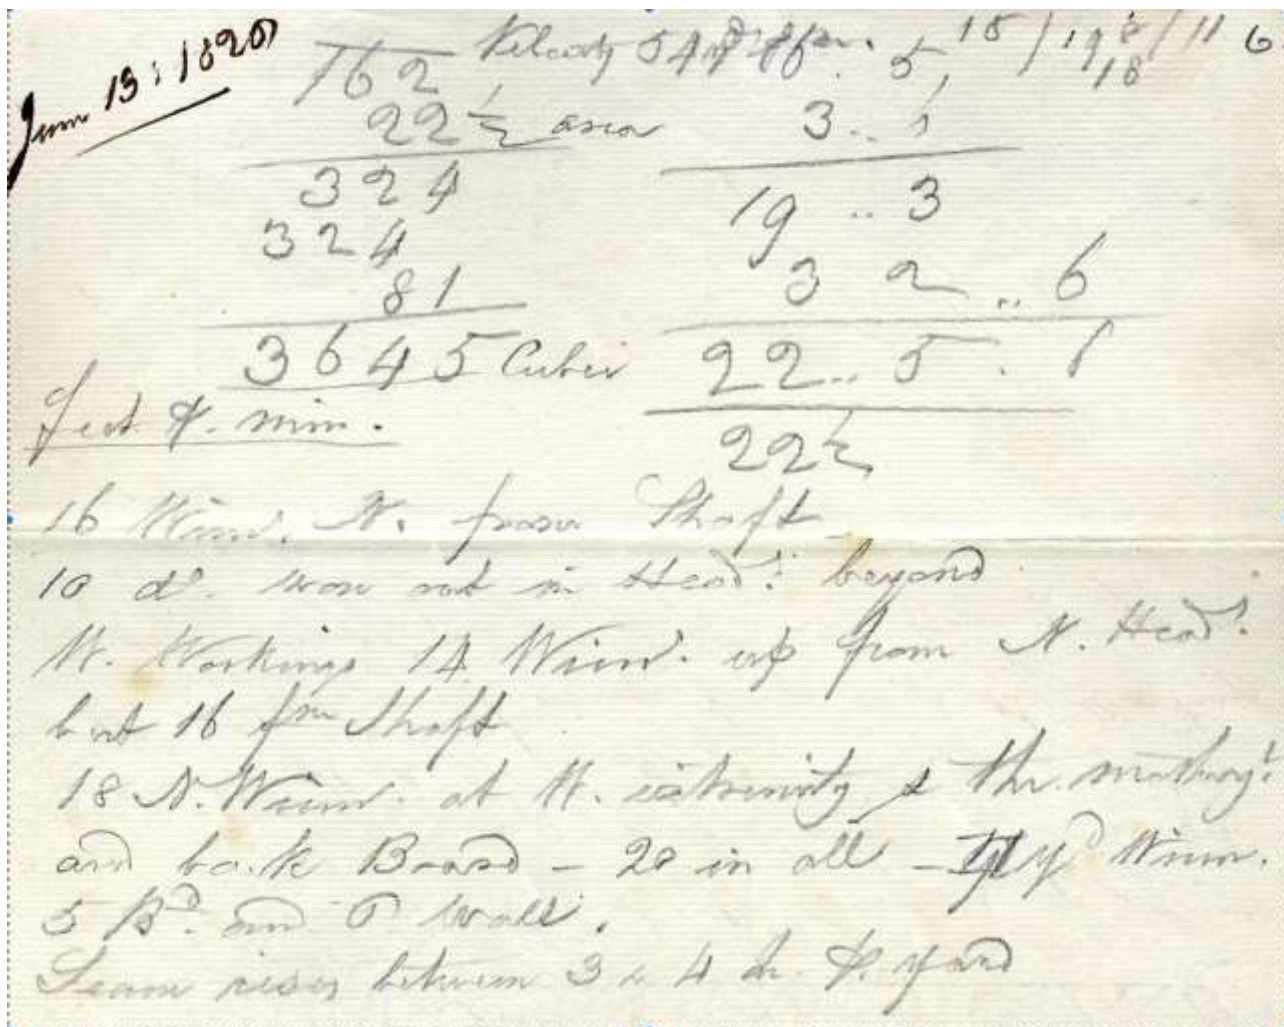 June 13: 1820
Velocity 54 yds pr. 5, 18 / 19 8/18 / 11 6
162 3.. 1
22½ area
324 19 .. 3
324 3 2 .. 6
81
3645 Cubic 22.. 5 . 6
feet P. min. 22½
16 Winn. N. from Shaft
10 do. won out in Headg. beyond
W. Workings 14 Winn. up from N. Headg.
but 16 fm Shaft
18 N. Winn. at W. extremity & the mothergt.
and back Board - 20 in all - yd Winn.
5 Bd. and 6 wall.
Seam rises between 3 & 4 In. P. yard